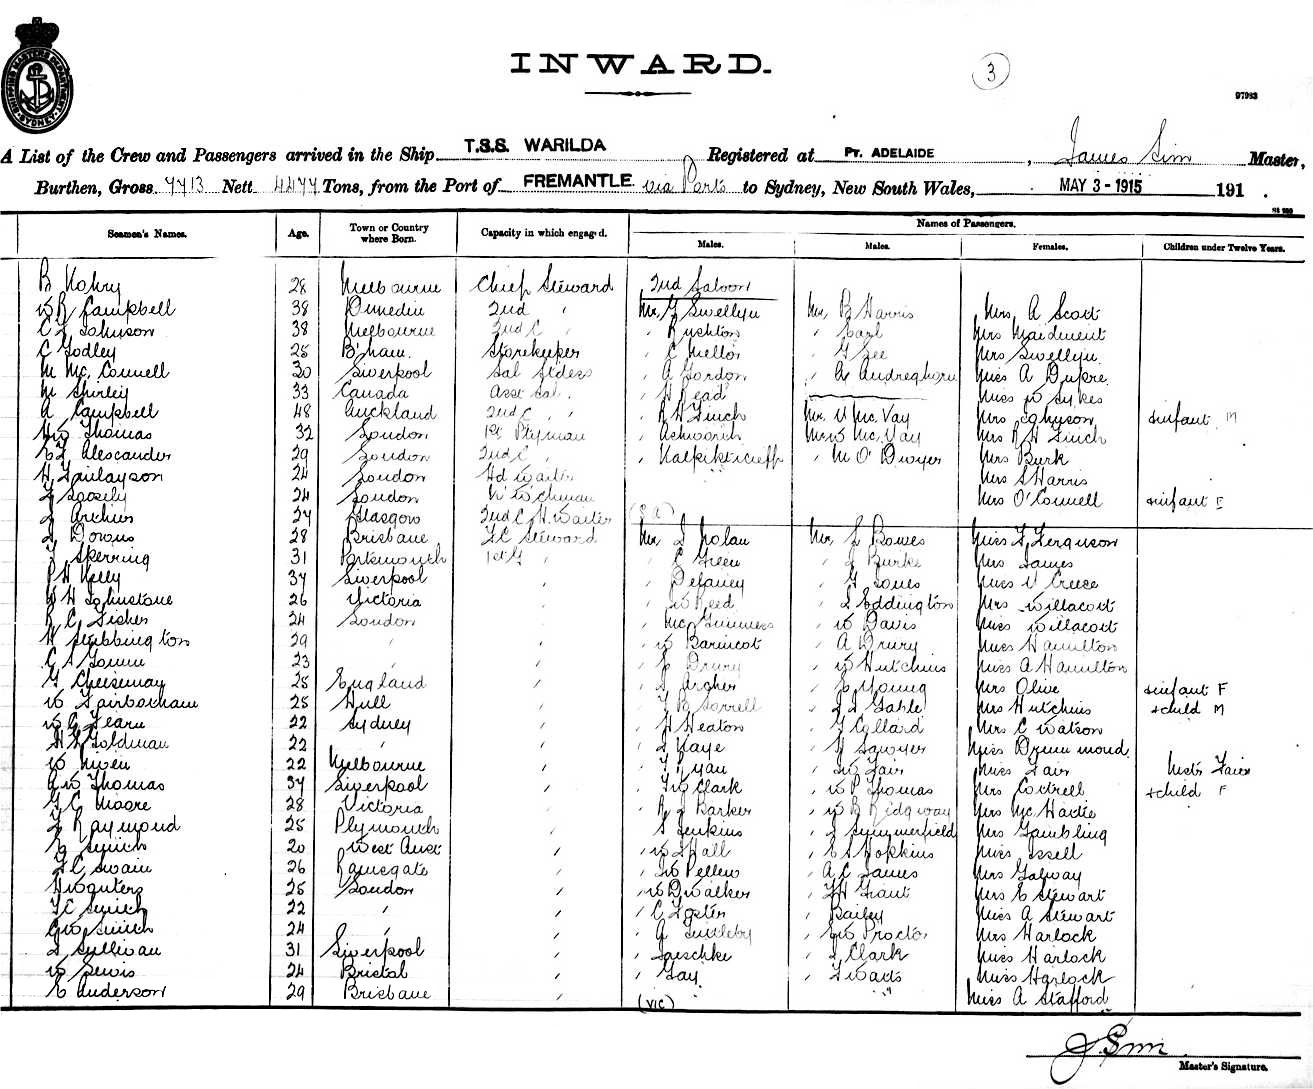 INWARD.
3
97983
A List of the Crew and Passengers arrived in the Ship T.S.S. WARILDA Registered at PT. ADELAIDE, James Sim Master,
Burthen, Gross 7713 Nett 4477 Tons, from the Port of FREMANTLE via Ports to Sydney, New South Wales, MAY 3 - 1915 191 .
Seamen's Names. Age. Town or Country where Born. Capacity in which engaged. Names of Passengers.
Males. Males. Females. Children under Twelve Years.
28 Melbourne Chief Steward 2nd Saloon
W R Campbell 38 Dunedin 2nd " Mr G Swellyn Mr B Harris Mrs A Scott
C L Johnson 38 Melbourne 2nd C " " Rushton " Earl Mrs Maidment
C Godley 25 B'ham. Storekeeper " C Mellor " G Lee Mrs Swellyn
M Mc Connell 30 Liverpool Sal Stdess " A Gordon Miss A Dupre
M Shirley 33 Canada Asst Sal. " H Read Miss W Sykes
A Campbell 48 Auckland 2nd C " " " R H Finch Mr V Mc Vay Mrs Johnson + infant M
H W Thomas 32 London 1st Plyman " Ashworth Mr W Mc Vay Mrs R H Finch
E L Alexander 29 London 2nd C " " M O'Dwyer Mrs Burk
H Finlayson 24 London Hd Waiter Mrs S Harris
24 London Mrs O'Connell + infant F
J Archer 27 Glasgow 2nd C H. Waiter (S.A)
J Downs 28 Brisbane F.C Steward Mr J Nolan Mr L Bowes Miss F Ferguson
J Skerring 31 Portsmouth 1st G " " C Green " J Burke Mrs James
P H Kelly 37 Liverpool " " Delaney " G Jones Miss V Creece
W H Johnstone 26 Victoria " " W Reed " J Eddington Mrs Willacott
R C Fisher 24 London " " McGuinness " W Davis Miss Willacott
H Stubbington 29 " " " W Barnicot " A Drury Miss Hamilton
C A Gomm 23 " " " E Drury " W Hutchins Miss A Hamilton
G Cheeseman 25 England " " J Archer " E Young Mrs Olive + infant F
W Fairbairham 25 Hull " " F B Sorrell " J S Gable Mrs Hutchins + child M
W G Fearn 22 Sydney " " H Heaton " G Collard Mrs C Watson
H F Goldman 22 " " " J Kaye " H Sawyer Miss Drummond
W Niven 22 Melbourne " " J Ryan " W Fair Miss Fair
A W Thomas 37 Liverpool " " F W Clark " W P Thomas Mrs Cottrell + child F
G C Moore 28 Victoria " " R J Barker " W B Ridgway Mrs Mc Hattie
J Raymond 25 Plymouth " " S Jenkins " J Summerfield Mrs Gambling
E Smith 20 West Aust " " W J Hall " E S Hopkins Miss Issell
F C Swain 26 Ramsgate " " W Pellew " A C James Mrs Galway
H Wouters 25 London " " W D Walker " F H Grant Mrs E Stewart
F C Smith 22 " " " C Foster " Bailey Miss A Stewart
Geo Smith 24 " " " A Suttleby " Geo Proctor Mrs Harlock
J Sullivan 31 Liverpool " " Jaeschke " J Clark Miss Harlock
W Lewis 24 Bristol " " Gay " Miss Harlock
E Anderson 29 Brisbane " (VIC) Miss A Stafford
J. Sim
Master's Signature.